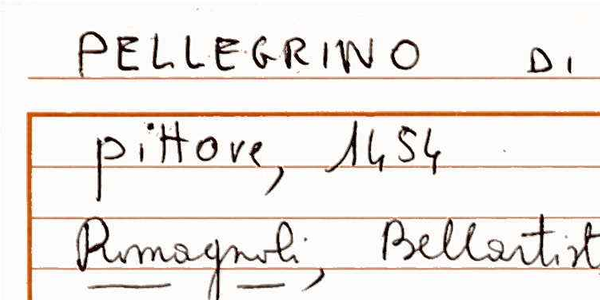 PELLEGRINO DI
pittore, 1454
Romagnoli, Bellartist